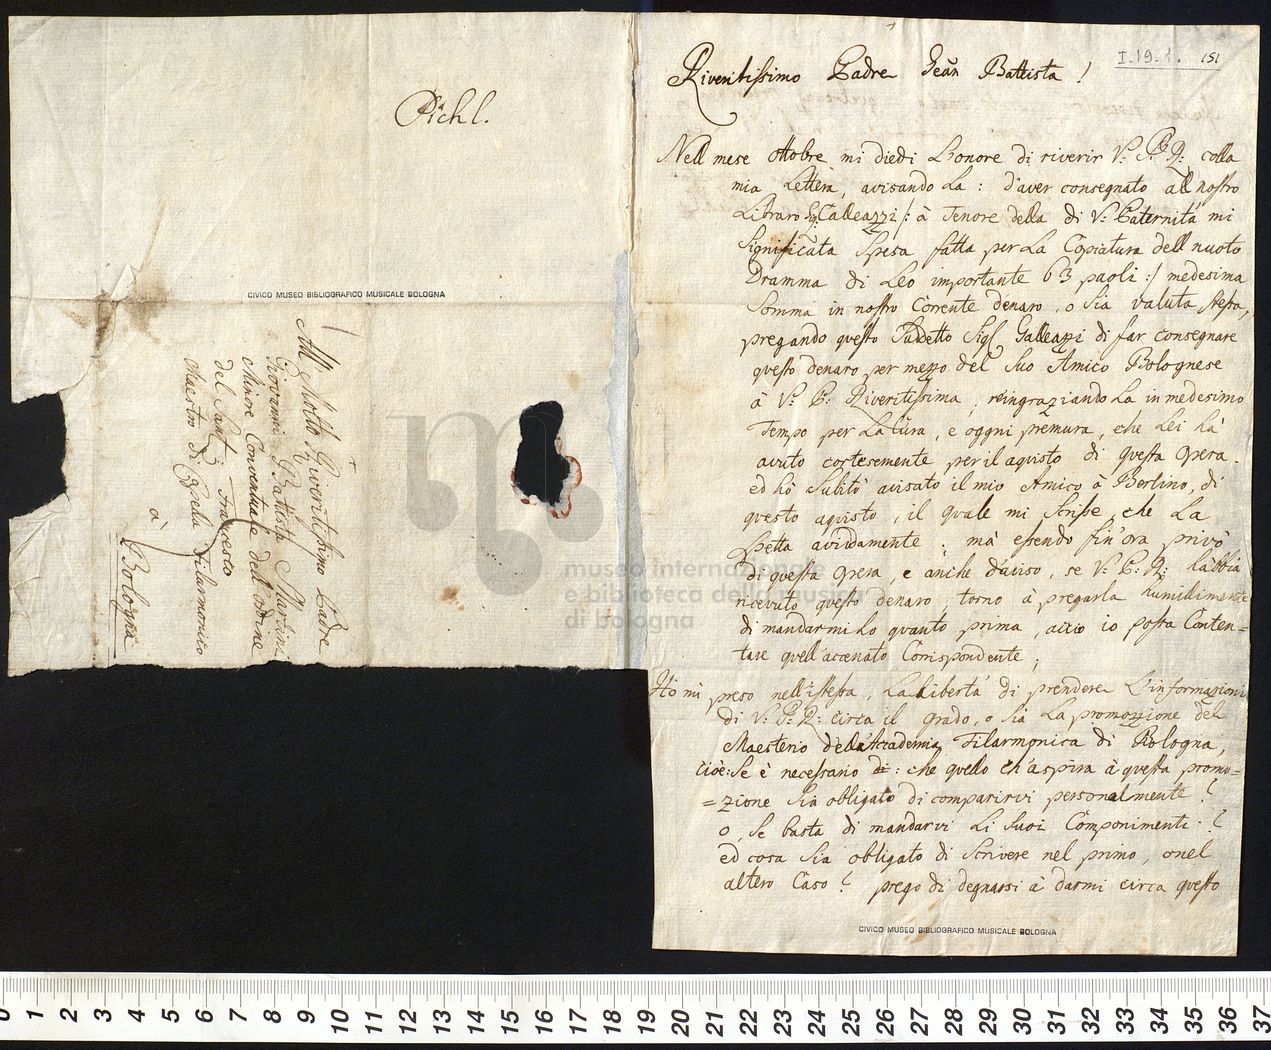 Pichl.
CIVICO MUSEO BIBLIOGRAFICO MUSICALE BOLOGNA
All Molto Riveritissimo Padre
Giovanni Battista Martini
Minore Conventuale dell'ordine
del Sant Francesco
Maestro di Capella Filarmonico
à Bologna
I.19.1. 151
Riveritissimo Padre Gean Battista!
Nell mese ottobre mi diedi L'onore di riverir V: P: R: colla
mia Lettera, avisando La: d'aver consegnato all nostro
Libraro Sig: Galleazzi /: à Tenore della di V: Paternità mi
Significata Spesa fatta per La Copiatura dell nuoto
Dramma di Leo importante 63 paoli :/ medesima
Somma in nostro Corrente denaro, o sia valuta stessa,
pregando questo Sudetto Sigl Galleazzi di far consegnare
questo denaro per mezzo del Suo Amico Bolognese
à V: P: Riveritissima; reingraziando La in medesimo
Tempo per La Cura, e oggni premura, che Lei hà
avuto cortesemente per il aquisto di questa opera.
ed hò Subitò avisato il mio Amico à Berlino, di
questo aquisto, il quale mi Scrisse, che La
spetta avidamente; mà essendo fin'ora privò
di questa opera, e anche d'aviso, se V: P: R: l'abbia
ricevuto questo denaro, torno à pregarla humilimente
di mandarmi Lo quanto prima, accio io possa Conten=
tare quell'accenato Corrispondente;
Hò mi preso nell'istessa, La Libertà di prendere L'informazioni
di V: P: R: circa il grado, o sia La promozzione del
Maesterio della Accademia Filarmonica di Bologna,
cioè: Se è necessario di: che quello ch'aspira à questa promo=
=zione Sia obligato di comparirvi personalmente?
o, Se basta di mandarvi Li Suoi Componimenti?
ed cosa Sia obligato di Scrivere nel primo, o nel
altero Caso? prego di degnarsi à darmi circa questo
CIVICO MUSEO BIBLIOGRAFICO MUSICALE BOLOGNA
museo internazionale
e biblioteca della musica
di bologna
0 1 2 3 4 5 6 7 8 9 10 11 12 13 14 15 16 17 18 19 20 21 22 23 24 25 26 27 28 29 30 31 32 33 34 35 36 37